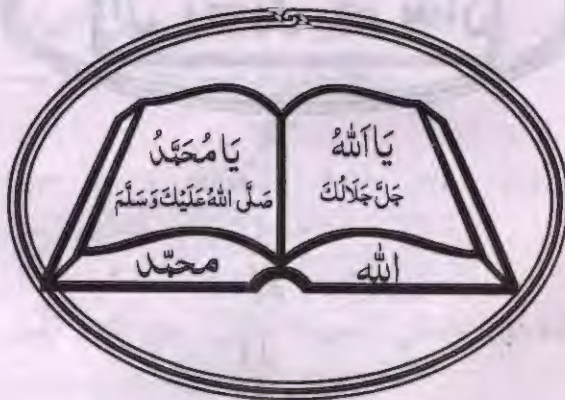 يَا اَللهُ
جَلَّ جَلَالُكَ
يَا مُحَمَّدُ
صَلَّى اللهُ عَلَيْكَ وَسَلَّمَ
الله
محمّد